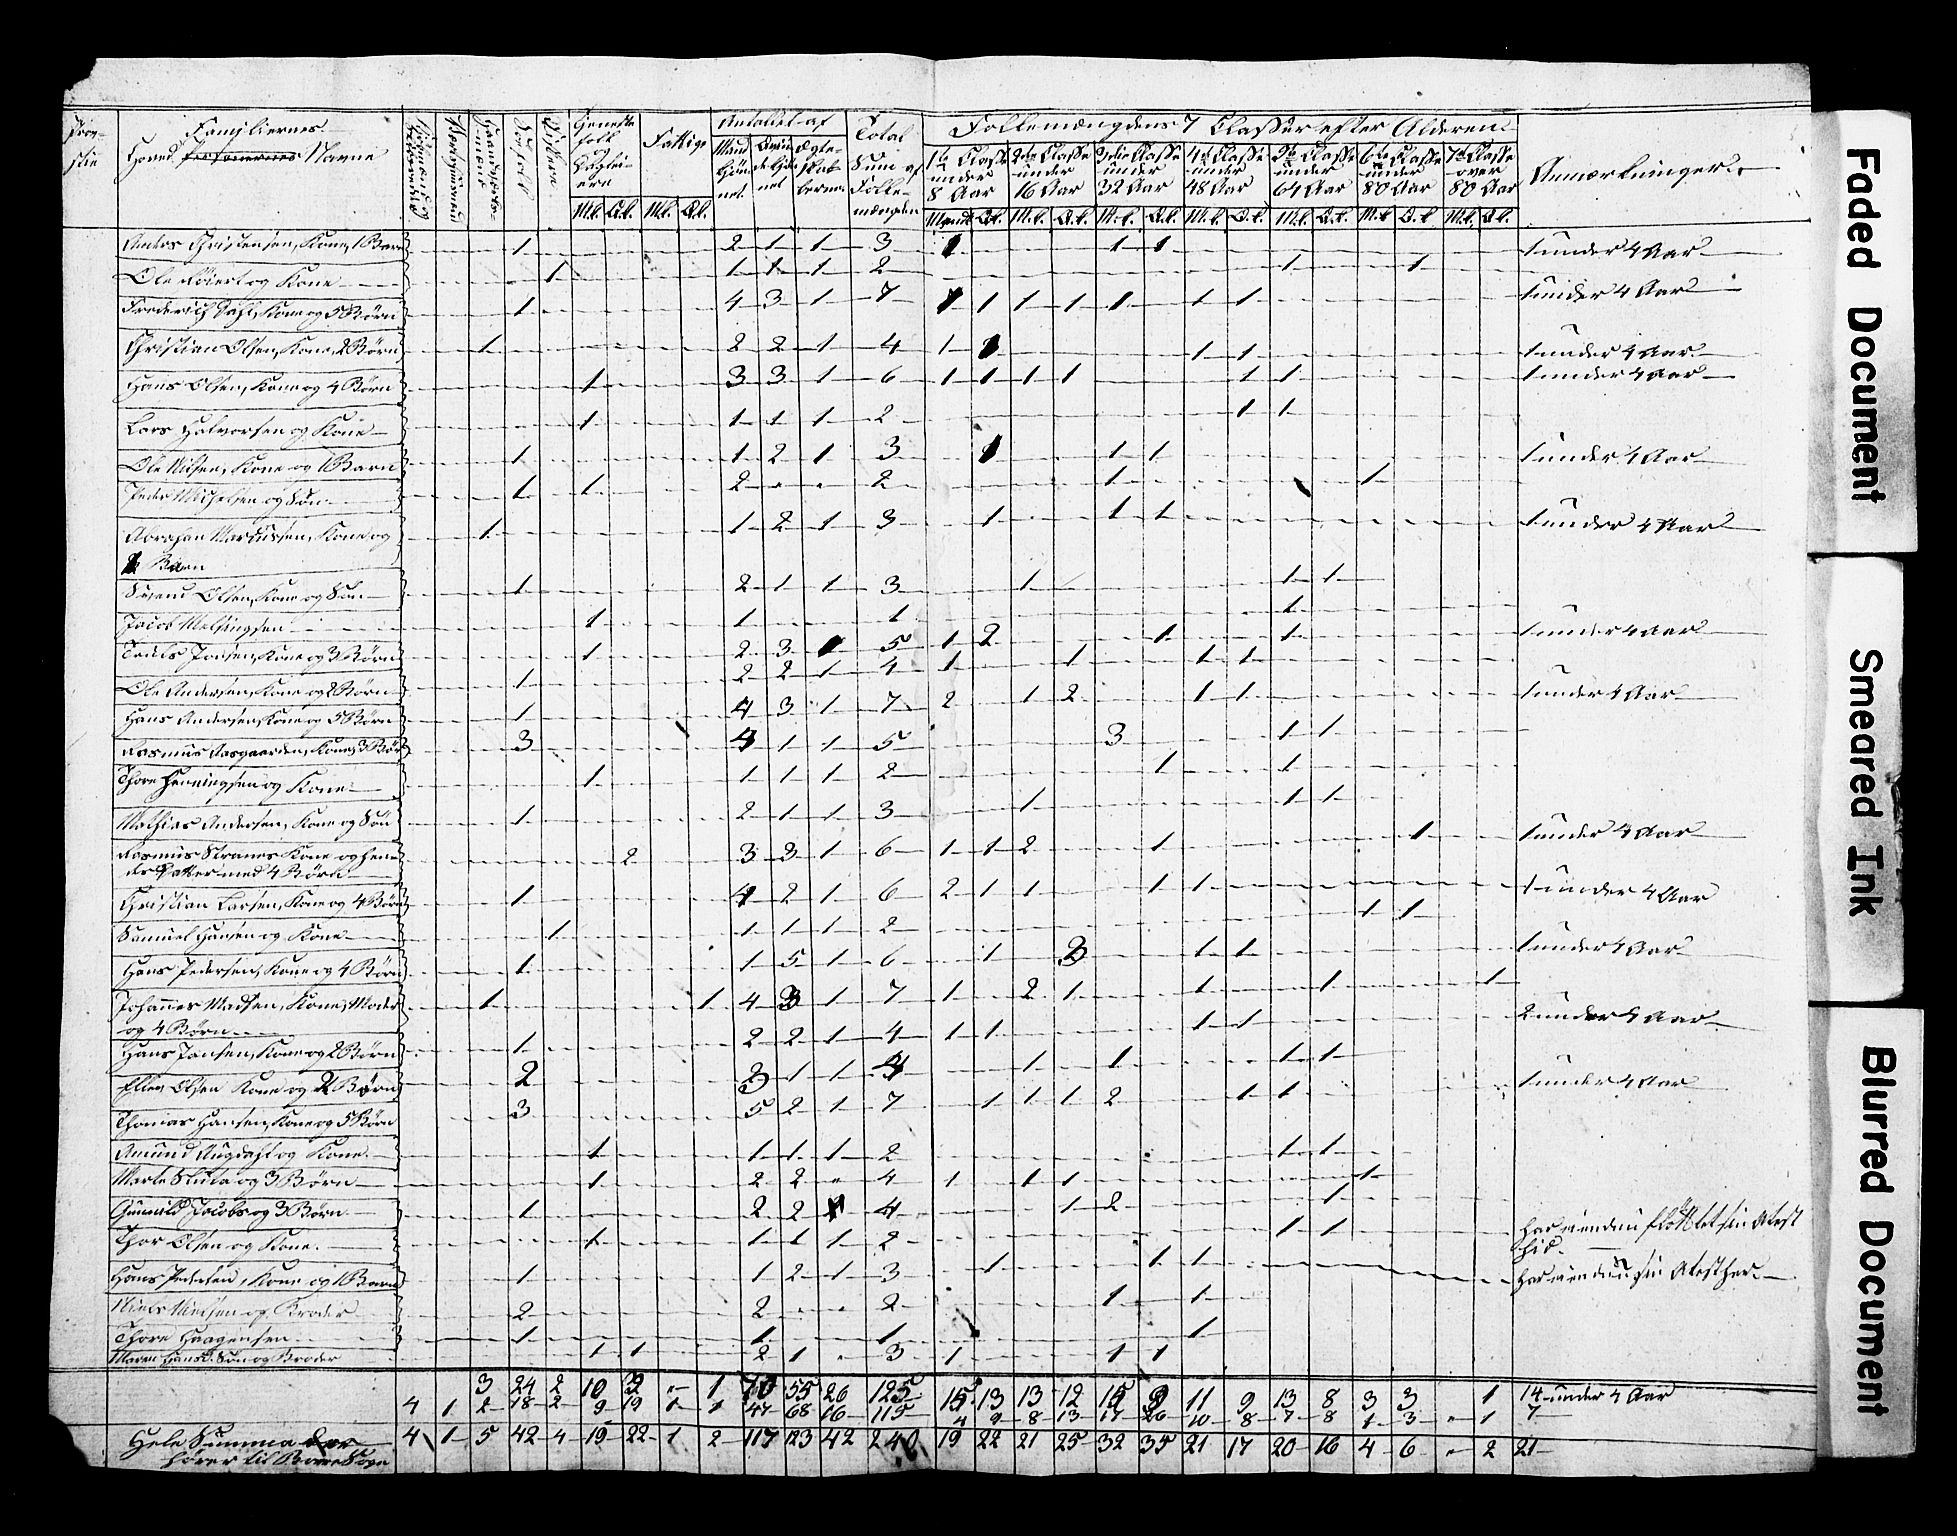 Familiernes
Hoved Personernes Navne
Tjeneste
folk
og
Fattige
Antallet af
Total
Sum af
Folke-
mængden
Folkemængdens 7 Classer efter Alderen
1ste Classe under 8 Aar
2den Classe under 16 Aar
3die Classe under 32 Aar
4de Classe under 48 Aar
5te Classe under 64 Aar
6te Classe under 80 Aar
7de Classe over 80 Aar
Anmærkninger
M.k. Q.k. M.k. Q.k. Mandk. Q.k. M.k. Q.k. M.k. Q.k. M.k. Q.k. M.k. Q.k. M.k. Q.k. M.k. Q.k.
Anders Christensen, Kone, 1 Barn 1 2 1 1 3 1 1 1 1 under 4 Aar
Ole og Kone 1 1 1 1 2 1 1
Frederich Dahl, Kone og 5 Børn 1 4 3 1 7 1 1 1 1 1 1 1 1 under 4 Aar
Christian Olsen, Kone, 2 Børn 1 2 2 1 4 1 1 1 1 1 under 4 Aar
Hans Olsen, Kone og 4 Børn 1 3 3 1 6 1 1 1 1 1 1 1 under 4 Aar
Lars Halvorsen og Kone 1 1 1 1 2 1 1
Ole Nilsen, Kone og 1 Barn 1 1 2 1 3 1 1 1 1 under 4 Aar
Peder Michelsen og Søn 1 1 2 - - 2 1 1
Abraham Marcussen, Kone og 1 1 2 1 3 1 1 1 1 under 4 Aar
1 Barn
Svend Olsen, Kone og Søn 1 2 1 1 3 1 1 1
Jacob 1 1 1 1
Jonsen, Kone og 3 Børn 1 2 3 1 5 1 2 1 1 1 under 4 Aar
Ole Andersen, Kone og 2 Børn 1 2 2 1 4 1 1 1 1
Hans Andersen, Kone og 5 Børn 1 4 3 1 7 2 1 2 1 1 1 under 4 Aar
Rasmus Aasgaarden, Kone, 3 Bør 3 4 1 1 5 3 1 1
Thore Henningsen og Kone 1 1 1 1 2 1 1
Mathias Andersen, Kone og Søn 1 2 1 1 3 1 1 1
Rasmus Kone og hen- 2 3 3 1 6 1 1 2 1 1 1 under 4 Aar
des Datter med 4 Børn
Christian Larsen, Kone og 4 Børn 1 4 2 1 6 2 1 1 1 1 1 under 4 Aar
Samuel Hansen og Kone 1 1 1 1 2 1 1
Hans Pedersen, Kone og 4 Børn 1 1 5 1 6 1 3 1 1 1 under 4 Aar
Johannes Madsen, Kone, Moder 1 1 4 3 1 7 1 2 1 1 1 1
og 4 Børn
Hans Jansen, Kone og 2 Børn 1 2 2 1 4 1 1 1 1 2 under 4 Aar
Ellen Olsen Kone og 2 Børn 2 3 1 1 4 1 1 1 1
Thomas Hansen, Kone og 5 Børn 3 5 2 1 7 1 1 1 2 1 1 1 under 4 Aar
Amund Augdahl og Kone 1 1 1 1 2 1 1
Marte og 3 Børn 1 2 2 - 4 1 1 1 1
Gunnild Jacobs og 3 Børn 1 2 2 4 1 2 1
Thor Olsen og Kone 1 1 1 1 2 1 1 har
hid.
Hans Pedersen, Kone og 1 Barn 1 1 2 1 3 1 1 1 har her
Niels Nielsen og Broder 2 2 - - 2 1 1
Thore Haagensen 1 1 1 1
Maren Hansd. Søn og Broder 1 1 2 1 - 3 1 1 1
3 24 2 10 3 - 1 70 55 26 125 15 13 13 12 15 9 11 9 13 8 3 3 1 14 under 4 Aar
4 1 2 18 2 9 19 1 1 47 68 16 115 4 9 8 13 17 26 10 8 7 8 1 3 - 1 7
Hele Summa der 4 1 5 42 4 19 22 1 2 117 123 42 240 19 22 21 25 32 35 21 17 20 16 4 6 - 2 21
hører til
Faded Document
Smeared Ink
Blurred Document